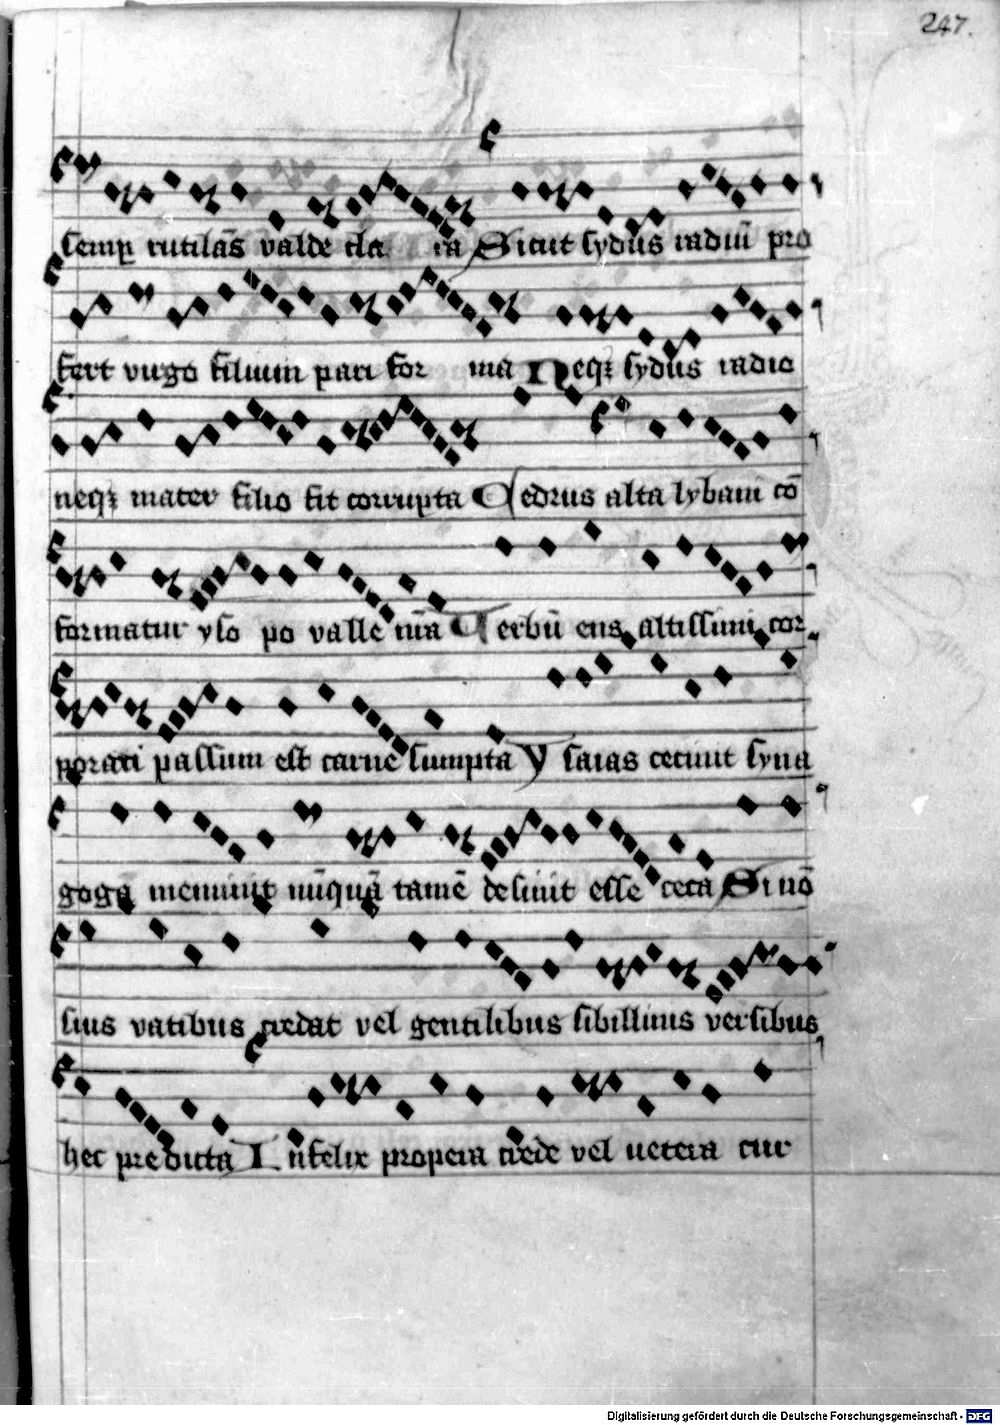 247.
Semp rutilās valde cla ra Sicut sydus radiū pro
fert virgo filium pari for ma Neqꝫ sydus radio
neqꝫ mater filio fit corrupta Cedrus alta lybani cō
formatur yso po valle nr̄a Verbū ens altissimi cor
porari passum est carne sumpta Ysaias cecinit syna
goga meminit nūquā tamē desinit esse ceca Si nō
suis vatibus credat vel gentilibus sibillinis versibus
hec predicta Infelix propera crede vel uetera cur
Digitalisierung gefördert durch die Deutsche Forschungsgemeinschaft - DFG